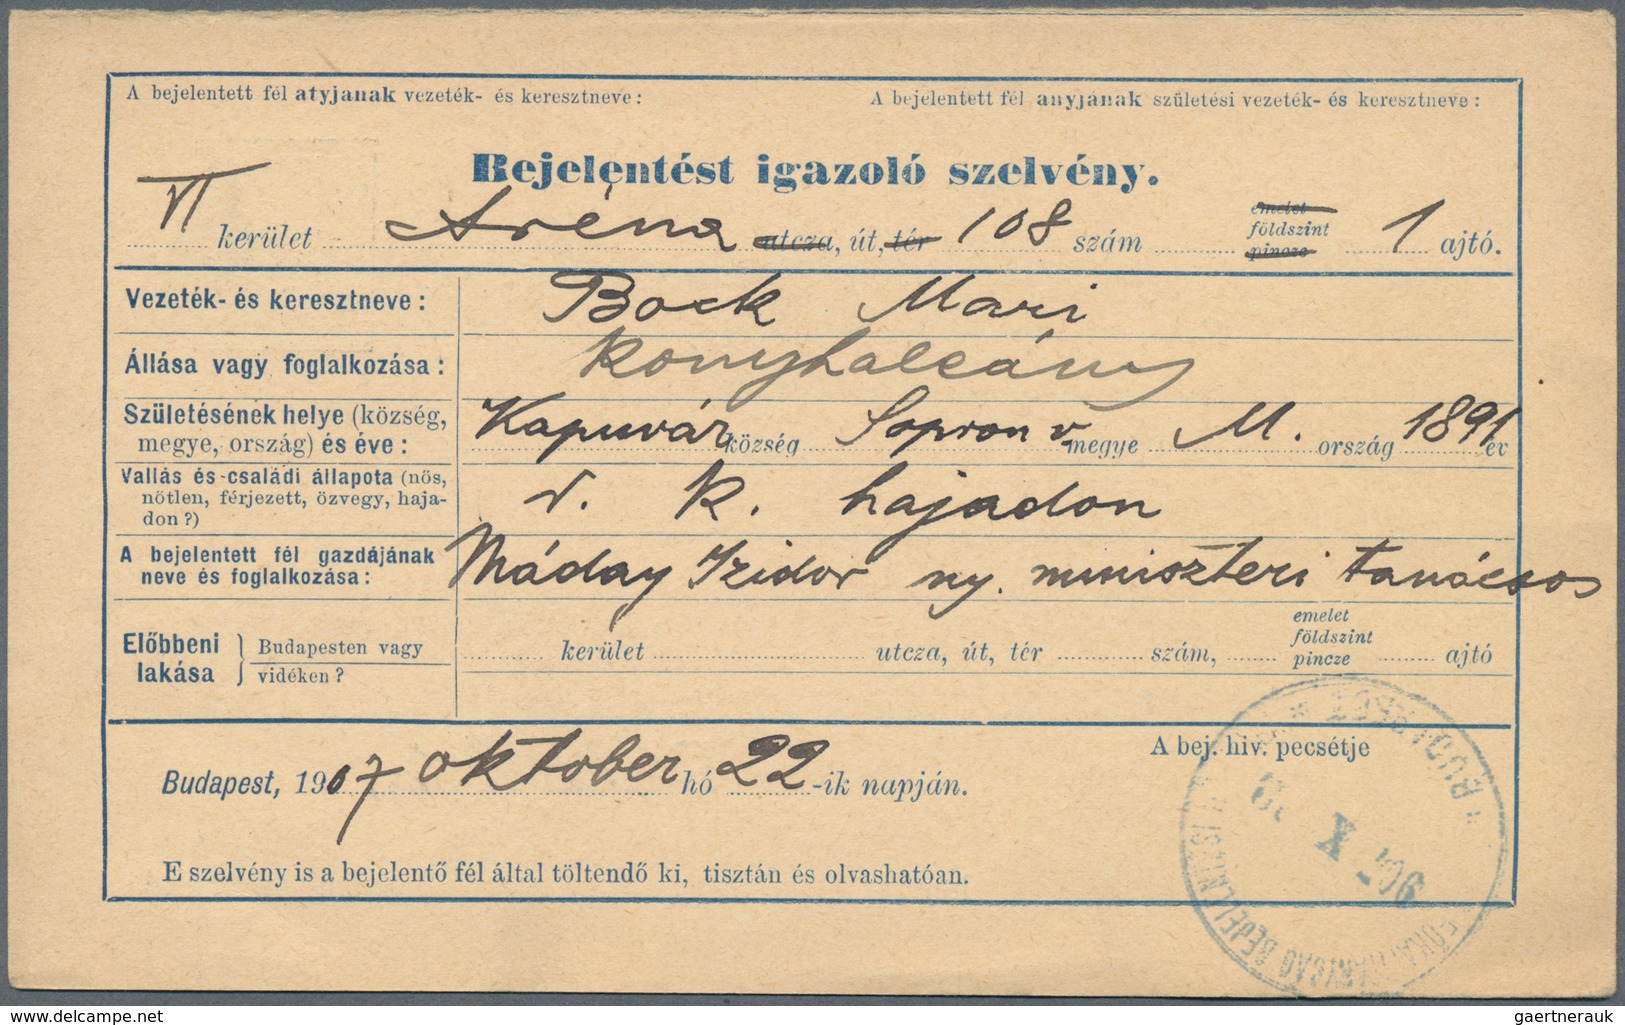 A bejelentett fél atyjának vezeték- és keresztneve: A bejelentett fél anyjának születési vezeték- és keresztneve:
Bejelentést igazoló szelvény.
VI kerület Aréna utcza, út, tér 108 szám emelet földszint pincze 1 ajtó.
Vezeték- és keresztneve: Bock Mari
Állása vagy foglalkozása: Konyhaleány
Születésének helye (község, megye, ország) és éve: Kapuvár község Sopron v megye M. ország 1891 év
Vallás és családi állapota (nös, nötlen, férjezett, özvegy, hajadon?) r. k. hajadon
A bejelentett fél gazdájának neve és foglalkozása: Máday Izidor ny. miniszteri tanácsos
Előbbeni lakása Budapesten vagy vidéken? kerület utcza, út, tér szám, emelet földszint pincze ajtó
Budapest, 1907 oktober hó 22-ik napján.
A bej. hiv. pecsétje
E szelvény is a bejelentő fél által töltendő ki, tisztán és olvashatóan.
BUDAPEST
X
BEJELENTÉSI
delcampe.net
gaertnerauk